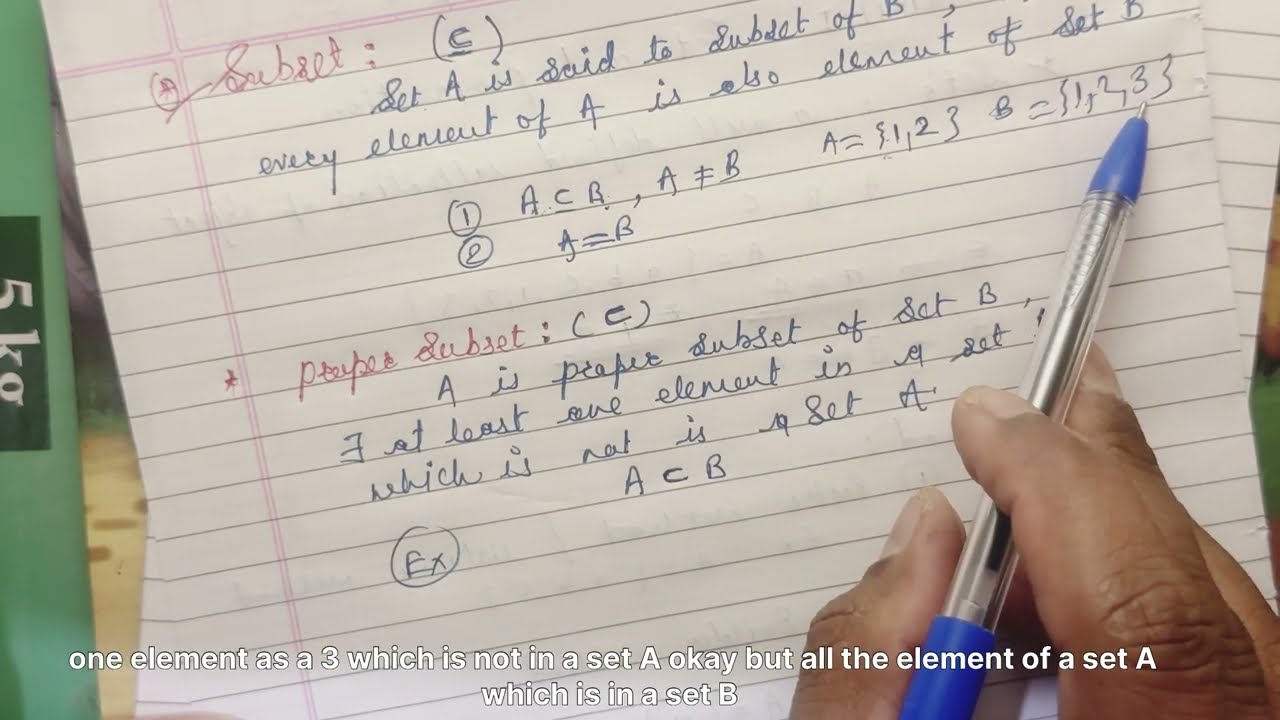 Subset : (⊆)
Set A is said to subset of B ,
every element of A is also element of set B
A = {1, 2} B = {1, 2, 3}
① A ⊆ B , A ≠ B
② A = B
* proper subset : (⊂)
A is proper subset of set B ,
∃ at least one element in a set
which is not is a set A.
A ⊂ B
Ex
5 ko
one element as a 3 which is not in a set A okay but all the element of a set A
which is in a set B